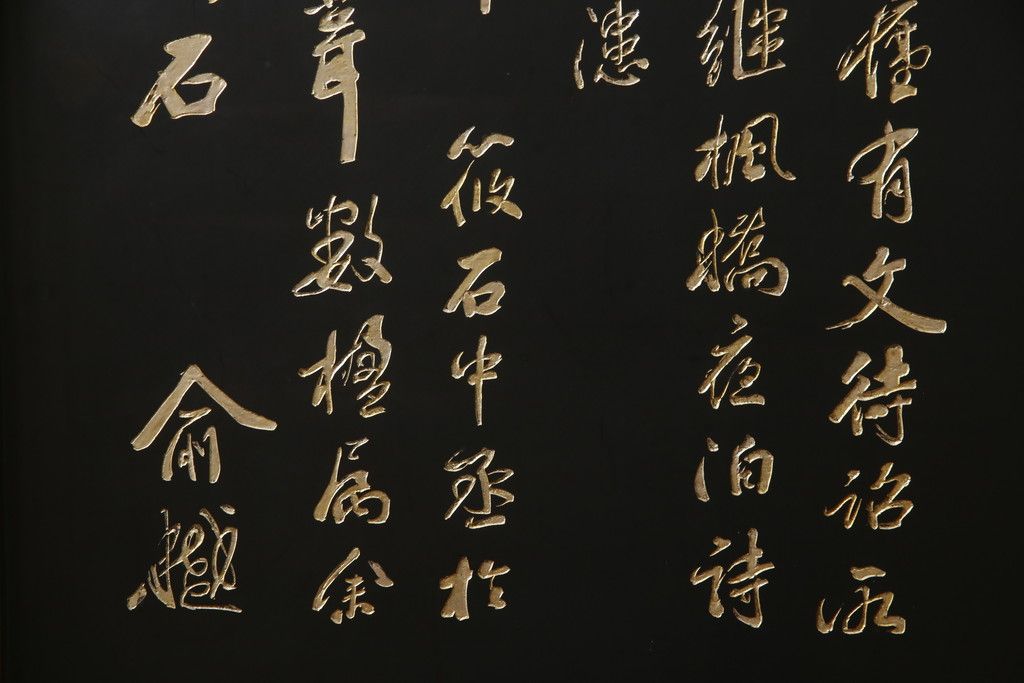 舊有文待詔所
継楓橋夜泊詩
漶
筱石中丞於
葺數楹属余
石 俞樾